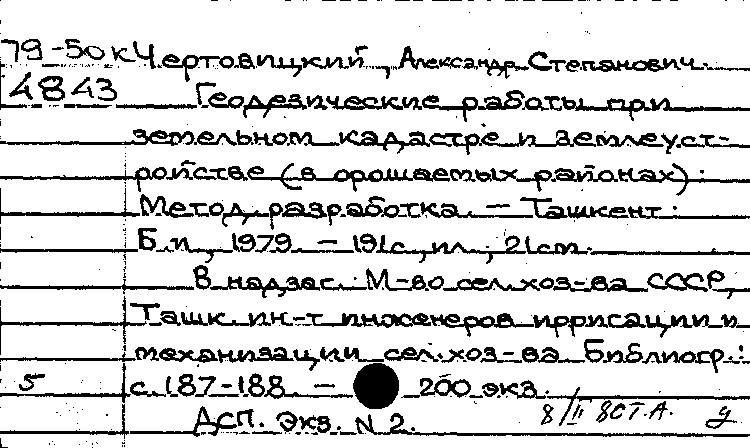 79-50к Чертовицкий, Александр Степанович.
4843 Геодезические работы при
земельном кадастре и землеуст-
ройстве (в орошаемых районах):
Метод. разработка. — Ташкент:
Б.и., 1979. — 191с., ил.; 21см.
В надзаг.: М-во сел.хоз-ва СССР,
Ташк. ин-т инженеров ирригации и
механизации сел.хоз-ва. Библиогр.:
5 с.187-188. — 200 экз.
ДСП. Экз. N 2. 8/II 80г. А. у